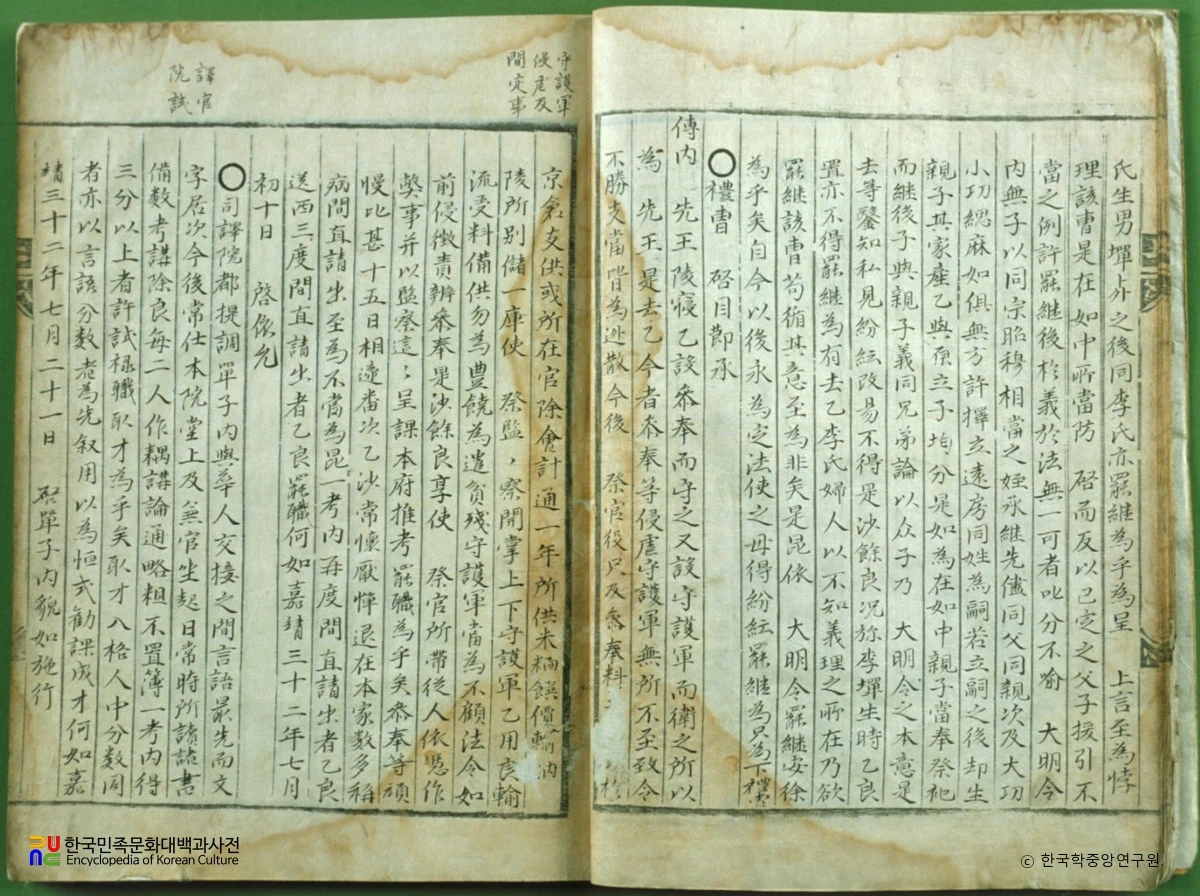 氏生男墠二外之後同李氏亦罷継為乎為呈 上言至為悖
理該曹是在如中所當防 啓而反以已定之父子援引不
當之例許罷継後於義於法無一可者叱分不喩 大明令
内無子以同宗昭穆相當之姪承継先儘同父同親次及大功
小功緦麻如俱無方許擇立遠房同姓為嗣若立嗣之後却生
親子其家産乙與原立子均分是如為在如中親子當奉祭祀
而継後子與親子義同兄弟論以众子乃 大明令之本意是
去等鑿知私見紛紜改易不得是沙餘良況旀李墠生時乙良
置亦不得罷継為有去乙李氏婦人以不知義理之所在乃欲
罷継該曹苟循其意至為非矣是昆依 大明令罷継安徐
為乎矣自今以後永為定法使之毋得紛紜罷継為只為下禮曹
〇禮曹 啓目節承
傳内 先王陵寝乙設叅奉而守之又設守護軍而衛之所以
為 先王是去乙今者叅奉等侵虐守護軍無所不至致令
不勝支當皆為逃散今後 祭官役只及叅奉料
守護軍
侵虐及
間定事
京倉支供或所在官除會計通一年所供米糆饌價輸納
陵所別儲一庫使 祭監〻察開掌上下守護軍乙用良輸
流受料備供勿為豊饒為遣貧残守護軍當為不顧法令如
前侵徵責辦叅奉是沙餘良享使 祭官所帶從人依憑作
弊事并以監察這〻呈課本府推考罷職為乎矣叅奉等頑
慢比甚十五日相遞番次乙沙常懷厭憚退在本家數多稱
病間直請出至為不當為昆一考内再度間直請出者乙良
送西三度間直請出者乙良罷職何如嘉靖三十二年七月
初十日 啓依允
譯官
院試
〇司譯院都提調單子内與華人交接之間言語最先而文
字居次今後常仕本院堂上及兼官坐起日常時所讀諸書
備數考講除良每二人作耦講論通略粗不置簿一考内得
三分以上者許試禄職取才為乎矣取才入格人中分數同
者亦以言語分數者為先叙用以為恒式勸課成才何如嘉
靖三十二年七月二十一日 啓單子内貌如施行
한국민족문화대백과사전
Encyclopedia of Korean Culture
© 한국학중앙연구원